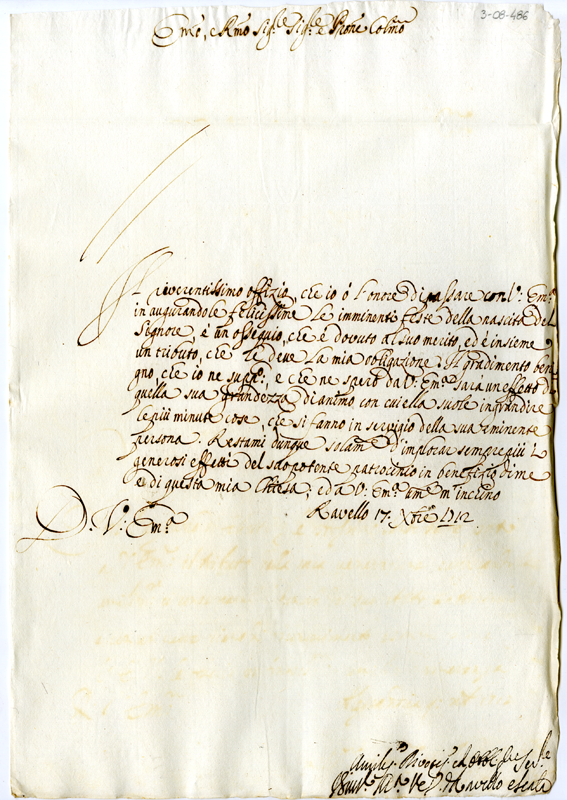 3-08-486
Em̃o, e Rmõ Sig.re Sig.re e Pr̃one Colm̃o
Il riverentissimo offizio, che io ò l'onore di passare con V.ra Em.za
in augurandole felicissime le imminenti feste della nascita del
Signore è un ossequio, che è dovuto al suo merito, ed è insieme
un tributo, che le deve la mia obligazione. Il gradimento beni
gno, che io ne suppl.co e che ne spero da V. Em.za sarà un effetto di
quella sua grandezza di animo con cui ella suole ingrandire
le più minute cose, che si fanno in servigio della sua eminente
persona. Restami dunque solam.te d'implorar sempre più i
generosi effetti del suo potente patrocinio in benefizio di me
e di questa mia Chiesa; ed a V. Em.za um.te m'inclino
Ravello 17. Xbre 1712
D. V.ra Em.za
Umiliss.o Divotis.o ed Ser.re
di Ravello e Scala